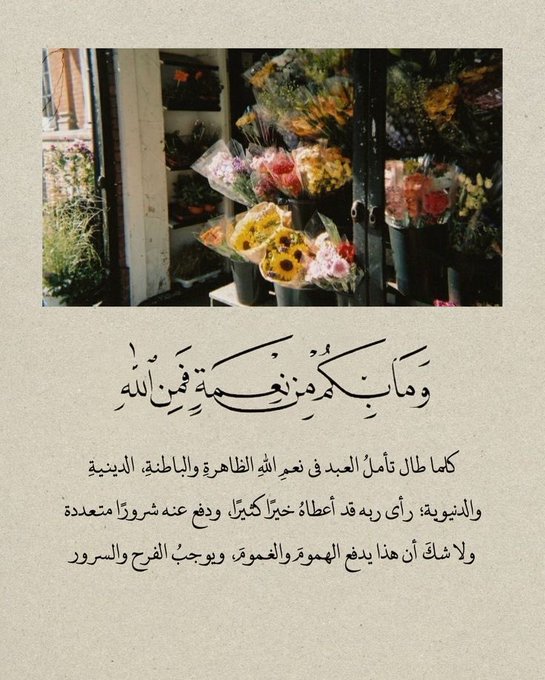 وَمَا بِكُم مِّن نِّعْمَةٍ فَمِنَ ٱللَّهِ
كلما طال تأملُ العبد فى نعمِ اللهِ الظاهرةِ والباطنةِ، الدينيةِ
والدنيوية؛ رأى ربه قد أعطاهُ خيرًا كثيرًا، ودفع عنه شرورًا متعددة
ولا شكَ أن هذا يدفع الهمومَ والغمومَ، ويوجبُ الفرح والسرور